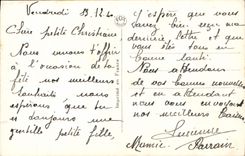 Vendredi 13.12.4
Chère petite Christiane
Nous nous t'offrir
à l'occasion de ta
fête nos meilleurs
souhaits nous
espérons que tu
es toujours une
gentille petite fille.
Imprimé en France
J'espère que vous
avez bien reçu ma
dernière lettre et que
vous êtes tous en
bonne santé
Nous attendons
de vos bonnes nouvelles
et en attendant
nous vous envoyons
nos meilleurs baisers
Lucienne
Mémée Parrain